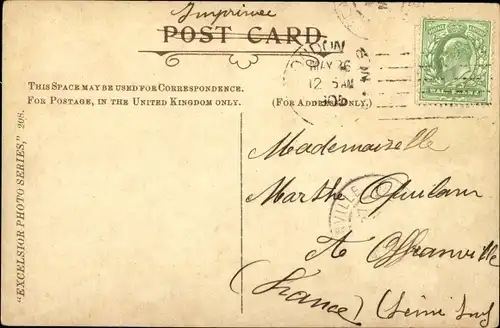 Imprimée
POST CARD.
LONDON
MAY 26
12 5 AM
05
THIS SPACE MAY BE USED FOR CORRESPONDENCE.
FOR POSTAGE, IN THE UNITED KINGDOM ONLY.
(FOR ADDRESS ONLY.)
"EXCELSIOR PHOTO SERIES," 208.
Mademoiselle
Marthe
VILLE
A Offranville
(France) (Seine Inf